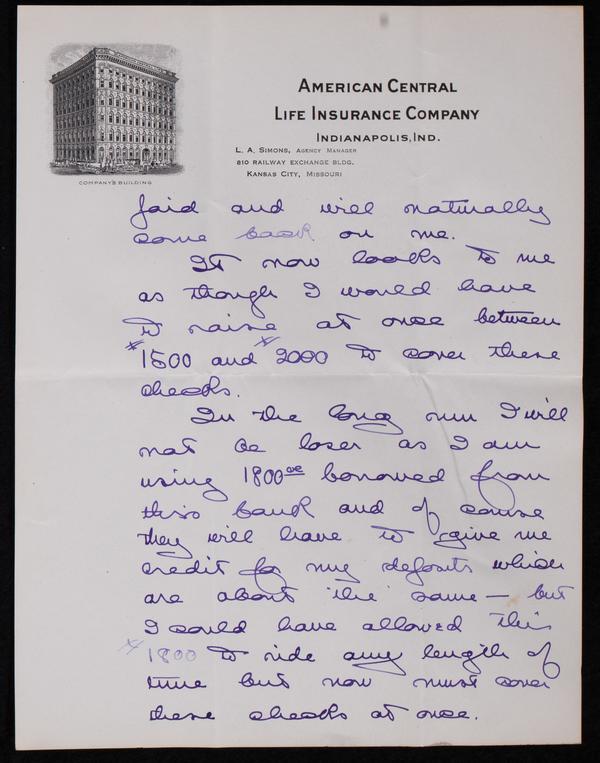 AMERICAN CENTRAL
LIFE INSURANCE COMPANY
INDIANAPOLIS, IND.
L. A. SIMONS, AGENCY MANAGER
810 RAILWAY EXCHANGE BLDG.
KANSAS CITY, MISSOURI
COMPANY'S BUILDING
paid and will naturally
come back on me.
It now looks to me
as though I would have
to raise at once between
$1500 and $2000 to cover these
checks.
In the long run I will
not be loser as I am
using 1800 00 borrowed from
this bank and of course
they will have to give me
credit for my deposits which
are about the same — but
I could have allowed this
$1800 to ride any length of
time but now must cover
these checks at once.